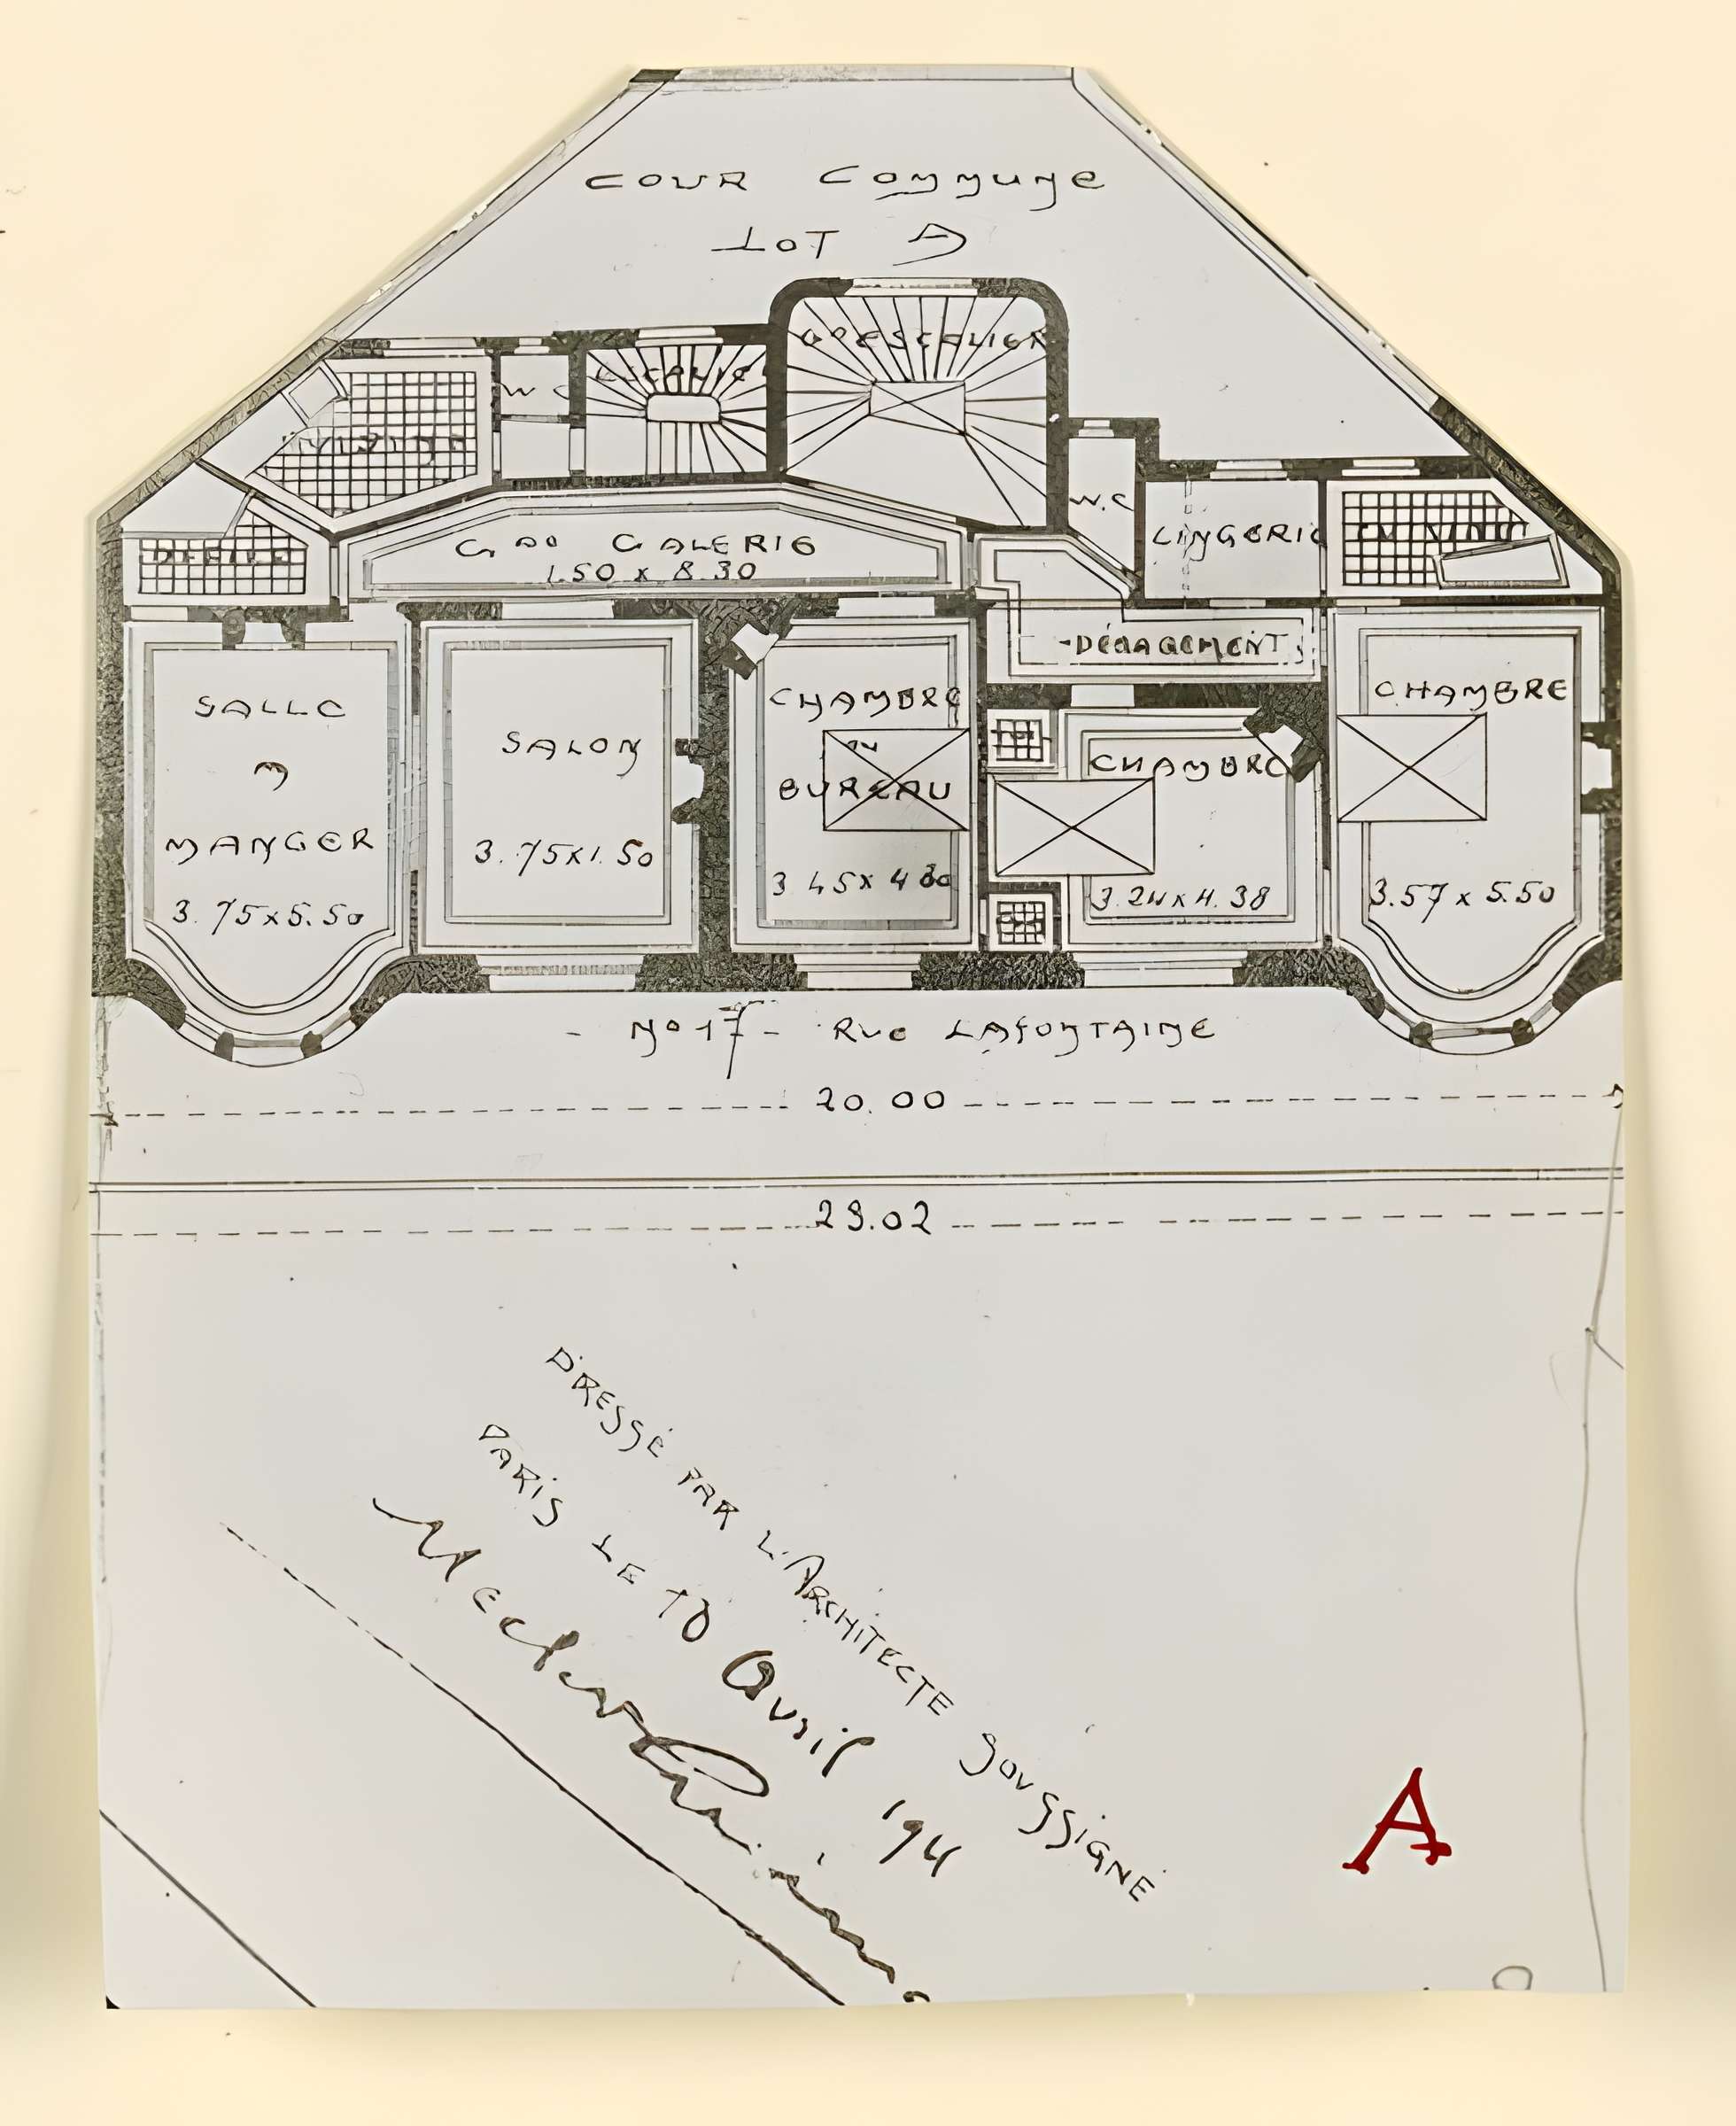 COUR COMMUNE
LOT A
GD ESCALIER
ESCALIER
W C
CUISINE
W.C
LINGERIE
OFFICE
GDE GALERIE
1.50 x 8.30
DÉGAGEMENT
SALLE
A
MANGER
3.75x5.50
SALON
3.75x1.50
CHAMBRE
OU
BUREAU
3 45x 4 80
CHAMBRE
3.24x4.38
CHAMBRE
3.57 x 5.50
- No 17 - RUE LAFONTAINE
20.00
23.02
DRESSÉ PAR L'ARCHITECTE SOUSSIGNÉ
PARIS LE 10 Avril
A